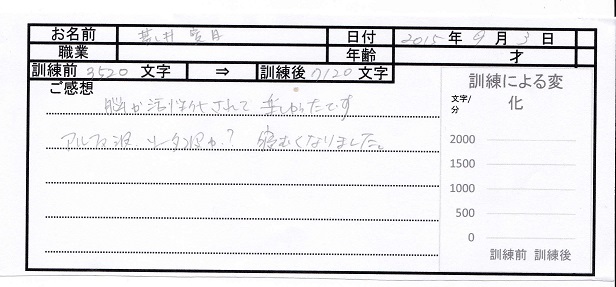 お名前 井 日付 2015 年 9 月 3 日
職業 年齢 才
訓練前 3520 文字 ⇒ 訓練後 7120 文字
ご感想
脳が活性化されて 楽しかったです
アルファ波、シータ波か? 眠むくなりました。
訓練による変化
文字/分
2000
1500
1000
500
0
訓練前 訓練後